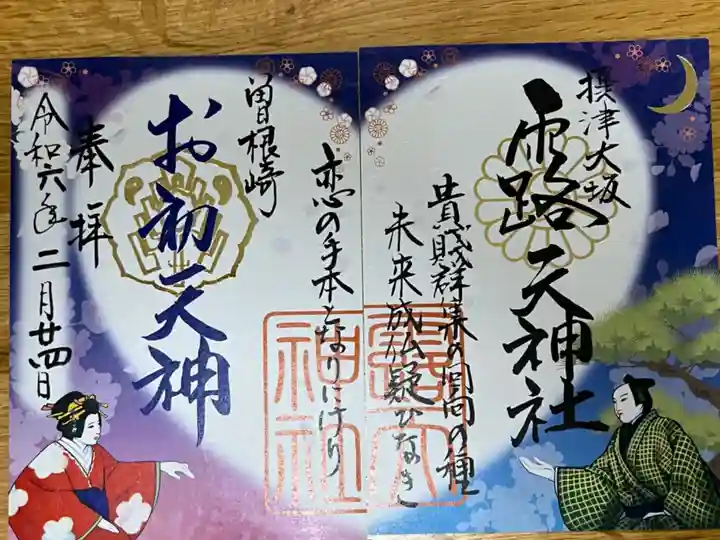 摂津大坂
露天神社
貴賤群集の回向の種
未来成仏疑ひなき
恋の手本となりにけり
曽根崎
お初天神
奉拝
令和六年二月廿四日
露天
神社